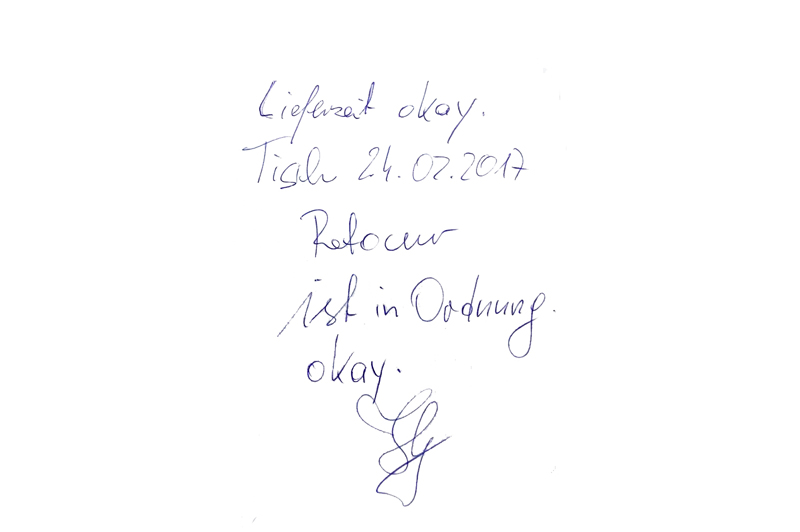 Lieferzeit okay.
Tisch 24.02.2017
Retour
ist in Ordnung.
okay.